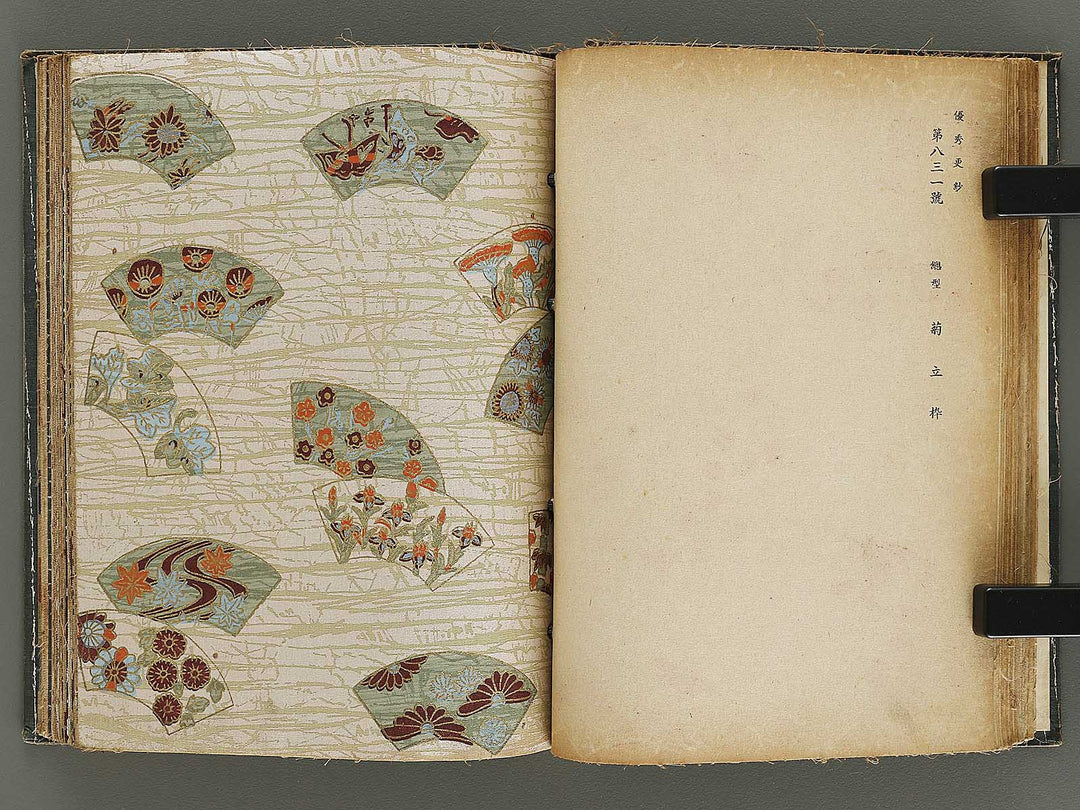 優秀更紗
第八三一號 𦀌型 菊立枠